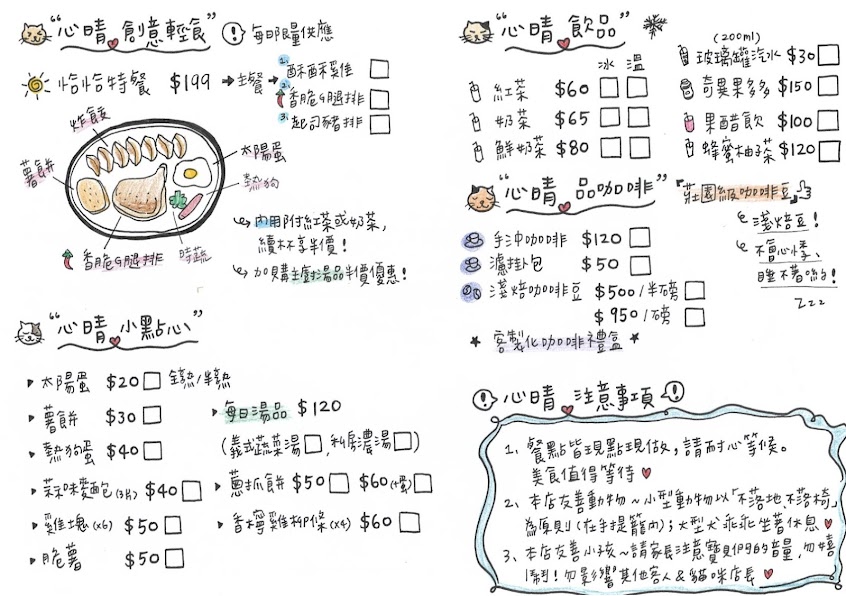 “心晴創意輕食” ! 每日限量供應
恰恰特餐 $199 → 主餐 →
1. 酥酥雞佳
2. 香脆腿排
3. 起司豬排
炸餃
薯餅
太陽蛋
熱狗
香脆腿排
時蔬
內用附紅茶或奶茶,
續杯享半價!
加購主廚湯品半價優惠!
“心晴小點心”
太陽蛋 $20 全熟/半熟
薯餅 $30
熱狗蛋 $40
蒜味麥包(3片) $40
雞塊(x6) $50
脆薯 $50
每日湯品 $120
(義式蔬菜湯, 私房濃湯)
蔥抓餅 $50 $60(+蛋)
香檸雞柳條(x4) $60
“心晴飲品”
冰 溫
紅茶 $60
奶茶 $65
鮮奶茶 $80
(200ml)
玻璃罐汽水 $30
奇異果多多 $150
果醋飲 $100
蜂蜜柚子茶 $120
“心晴品咖啡”
手沖咖啡 $120
濾掛包 $50
淺焙咖啡豆 $500/半磅
$950/磅
★ 客製化咖啡禮盒 ★
『莊園級咖啡豆』
淺焙豆!
不會心悸、
睡不著喲!
Zzz
! 心晴注意事項 !
1、餐點皆現點現做,請耐心等候。
美食值得等待
2、本店友善動物~小型動物以「不落地、不落椅」
為原則(在手提籠內);大型犬乖乖坐著休息
3、本店友善小孩~請家長注意寶貝們的音量,勿嬉
鬧!勿影響其他客人&貓咪店長